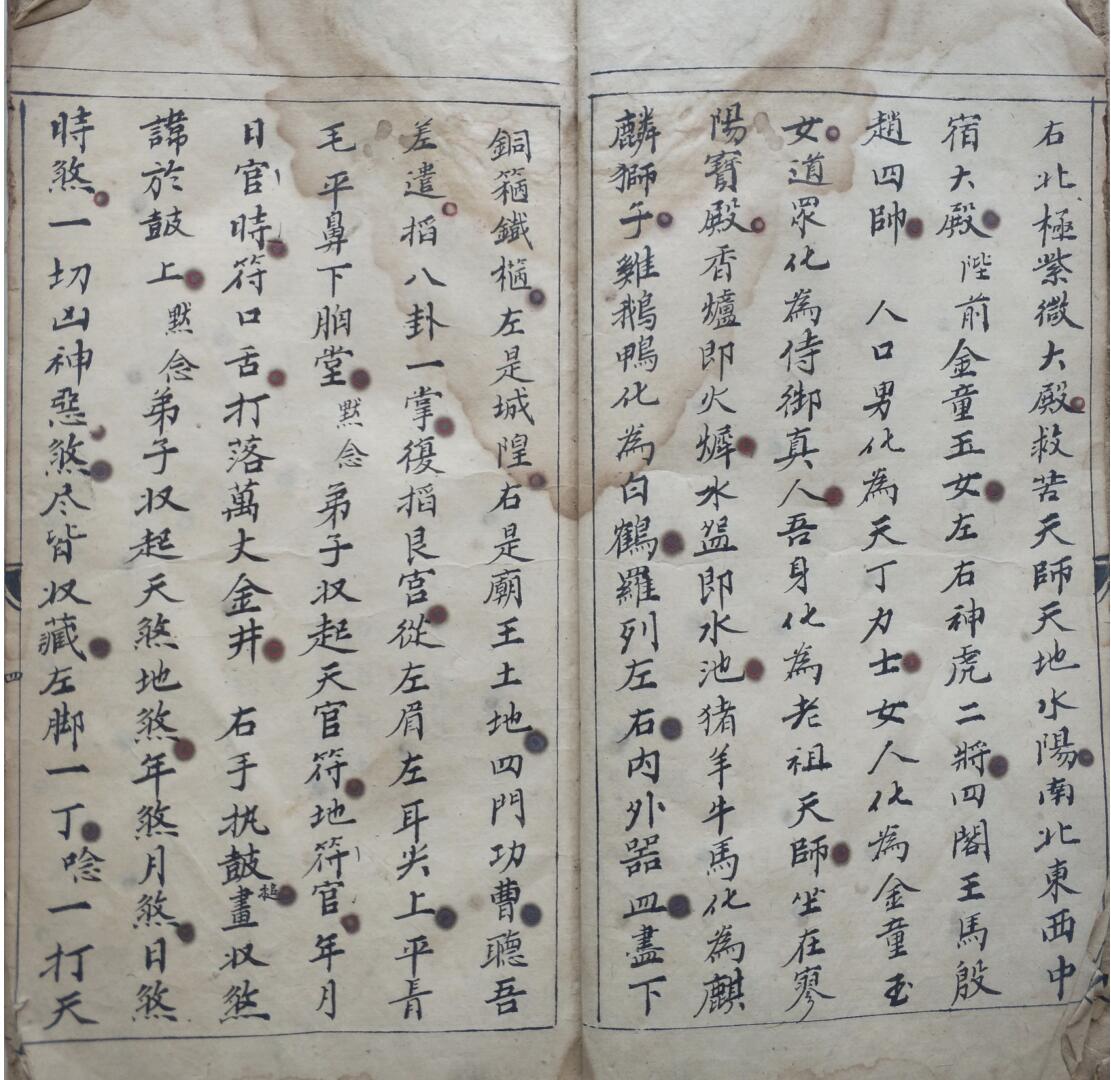 右北極紫微大殿救苦天師天地水陽南北東西中
宿大殿陛前金童玉女左右神虎二將四閣王馬殷
趙四帥 人口男化為天丁力士女人化為金童玉
女道眾化為侍御真人吾身化為老祖天師坐在寥
陽寶殿香爐即火爐水盌即水池猪羊牛馬化為麒
麟獅子雞鵝鴨化為白鶴羅列左右內外器皿盡下
銅箍鐵箍左是城隍右是廟王土地四門功曹聽吾
差遣搯八卦一掌復搯艮宮從左眉左耳尖上平肩
毛平鼻下胸堂默念弟子収起天官符地符官年月
日官時符口舌打落萬丈金井 右手执鼓槌畫収煞
諱於鼓上默念弟子収起天煞地煞年煞月煞日煞
時煞一切凶神惡煞尽皆収藏左脚一丁唸一打天
四